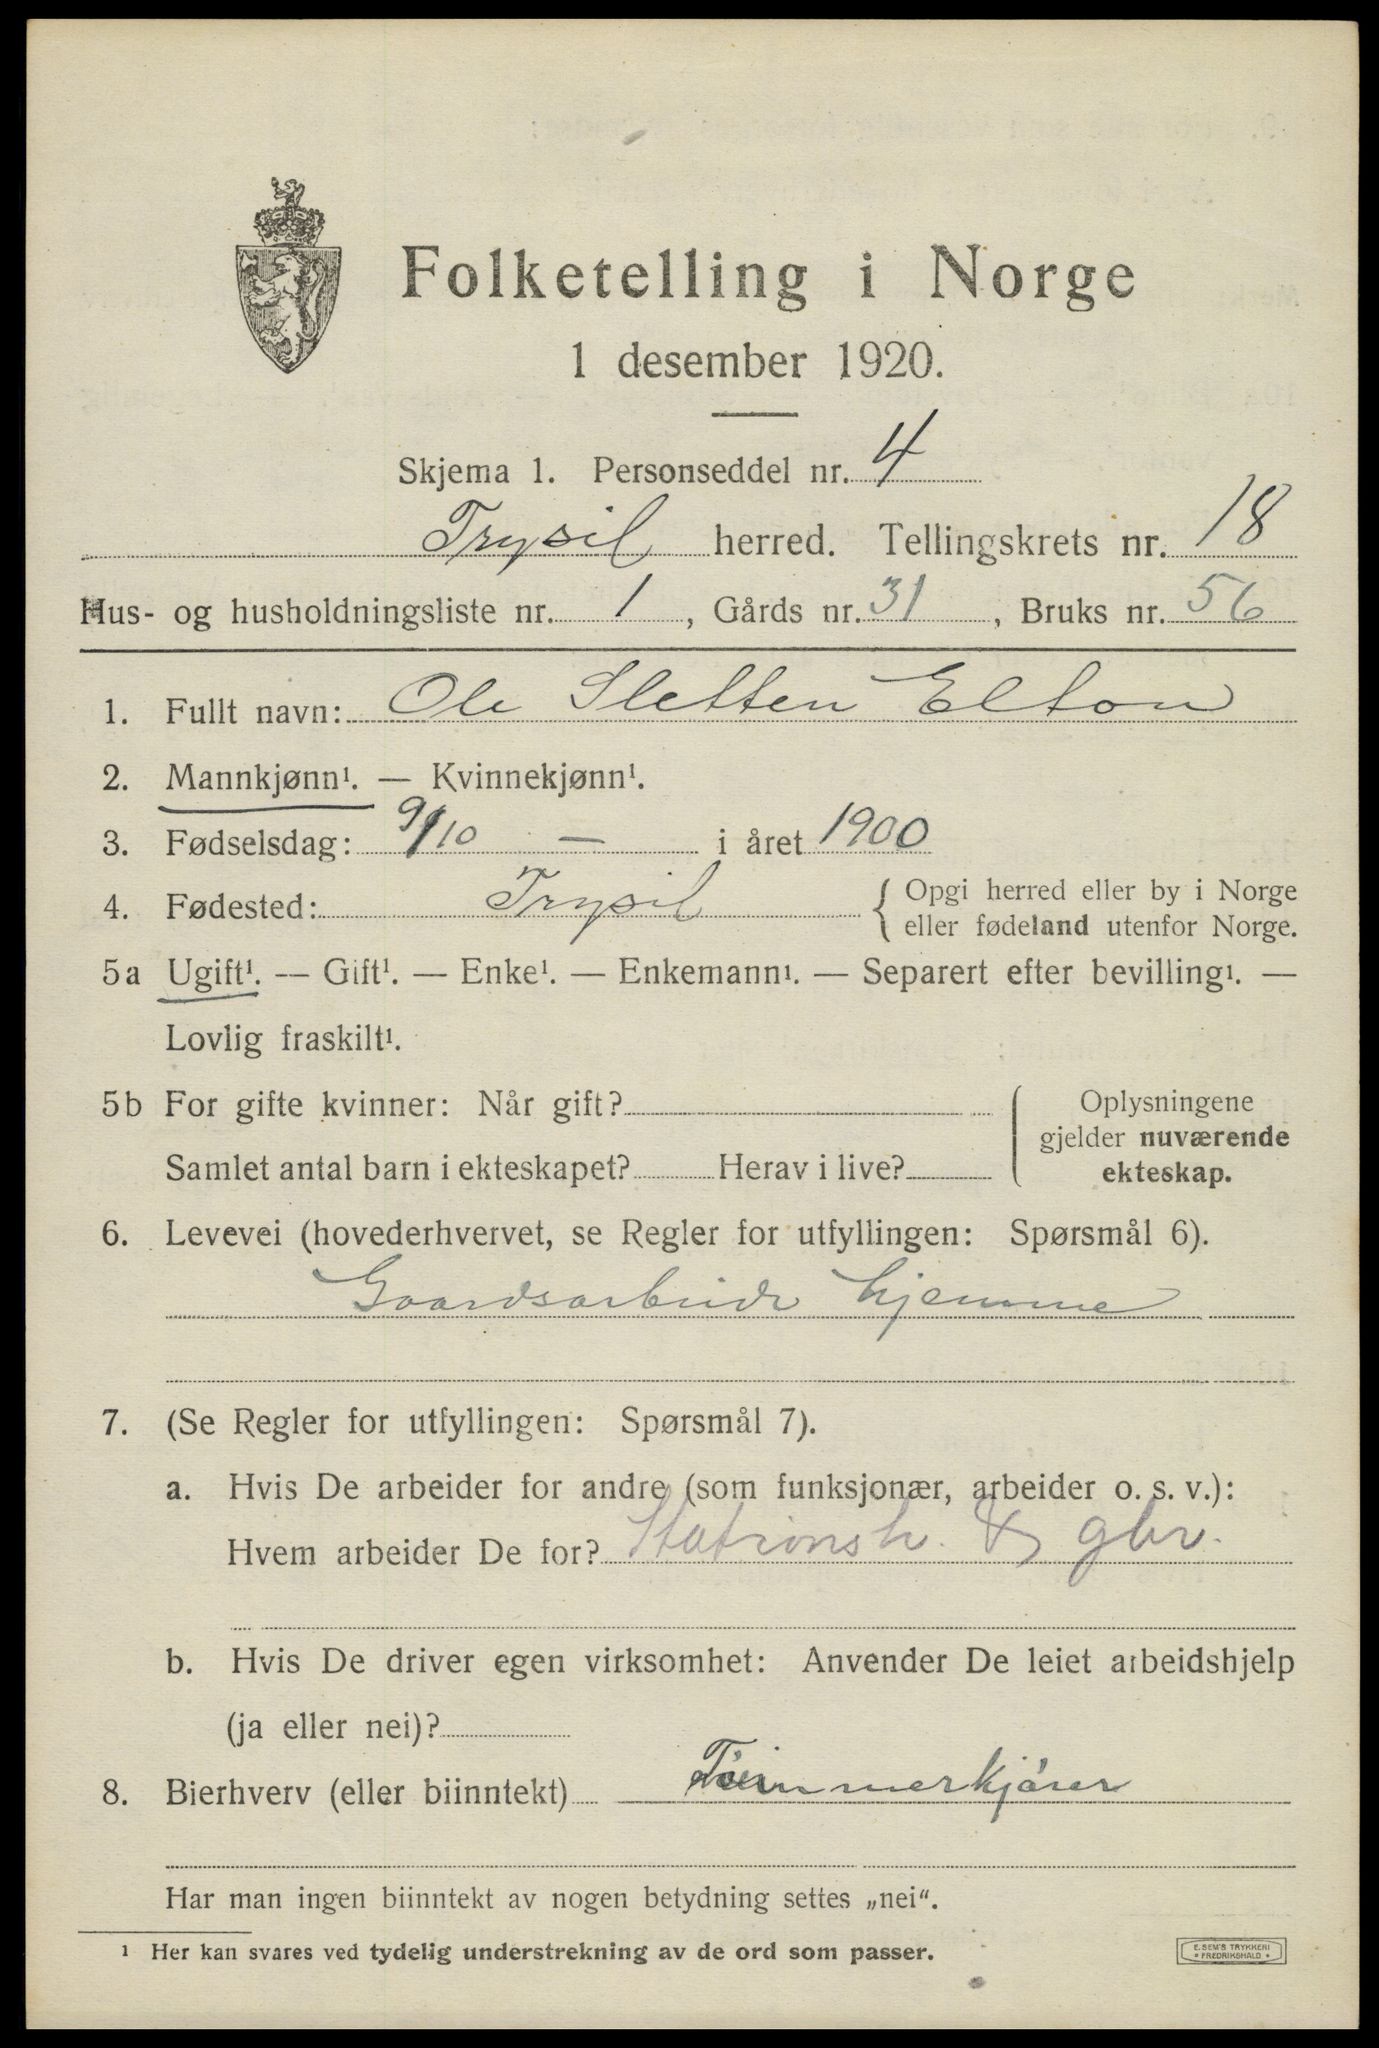 Folketelling i Norge
1 desember 1920.
Skjema 1. Personseddel nr. 4
Trysil herred. Tellingskrets nr. 18
Hus- og husholdningsliste nr. 1, Gårds nr. 31, Bruks nr. 56
1. Fullt navn: Ole Sletten Elton
2. Mannkjønn¹. — Kvinnekjønn¹.
3. Fødselsdag: 9/10 — i året 1900
4. Fødested: Trysil { Opgi herred eller by i Norge
eller fødeland utenfor Norge.
5a Ugift¹. — Gift¹. — Enke¹. — Enkemann¹. — Separert efter bevilling¹. —
Lovlig fraskilt¹.
5b For gifte kvinner: Når gift?
Samlet antal barn i ekteskapet? Herav i live?
Oplysningene
gjelder nuværende
ekteskap.
6. Levevei (hovederhvervet, se Regler for utfyllingen: Spørsmål 6).
Gaardsarbeide hjemme
7. (Se Regler for utfyllingen: Spørsmål 7).
a. Hvis De arbeider for andre (som funksjonær, arbeider o. s. v.):
Hvem arbeider De for? Stationsh. & gbr.
b. Hvis De driver egen virksomhet: Anvender De leiet arbeidshjelp
(ja eller nei)?
8. Bierhverv (eller biinntekt) Tømmerkjører
Har man ingen biinntekt av nogen betydning settes „nei".
¹ Her kan svares ved tydelig understrekning av de ord som passer.
E. SEM'S TRYKKERI
FREDRIKSHALD